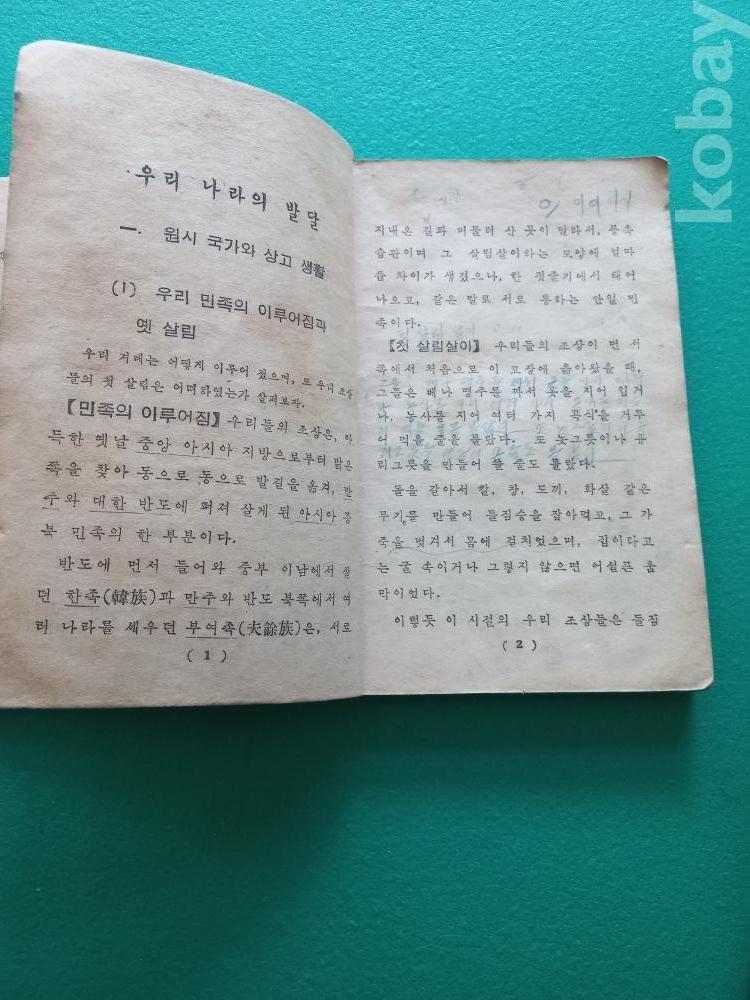 우리 나라의 발달
一. 원시 국가와 상고 생활
(1) 우리 민족의 이루어짐과
옛 살림
우리 겨레는 어떻게 이루어 졌으며, 또 우리 조상
들의 첫 살림은 어떠하였는가 살펴보자.
【민족의 이루어짐】 우리들의 조상은, 아
득한 옛날 중앙 아시아 지방으로부터 밝은
쪽을 찾아 동으로 동으로 발길을 옮겨, 만
주와 대한 반도에 퍼져 살게 된 아시아 동
북 민족의 한 부분이다.
반도에 먼저 들어와 중부 이남에서 살
던 한족(韓族)과 만주와 반도 북쪽에서 여
러 나라를 세우던 부여족(夫餘族)은, 서로
( 1 )
지내온 길과 머물러 산 곳이 달라서, 풍속
습관이며 그 살림살이하는 모양에 얼마
쯤 차이가 생겼으나, 한 핏줄기에서 태어
나오고, 같은 말로 서로 통하는 단일 민
족이다.
【첫 살림살이】 우리들의 조상이 먼 서
쪽에서 처음으로 이 고장에 옮아왔을 때,
그들은 베나 명주를 짜서 옷을 지어 입거
나, 농사를 지어 여러 가지 곡식을 거두
어 먹을 줄을 몰랐다. 또 놋그릇이나 유
리그릇을 만들어 쓸 줄도 몰랐다.
돌을 갈아서 칼, 창, 도끼, 화살 같은
무기를 만들어 들짐승을 잡아먹고, 그 가
죽을 벗겨서 몸에 걸치었으며, 집이다고
는 굴 속이거나 그렇지 않으면 어설픈 움
막이었다.
이렇듯 이 시절의 우리 조상들은 들짐
( 2 )
kobay